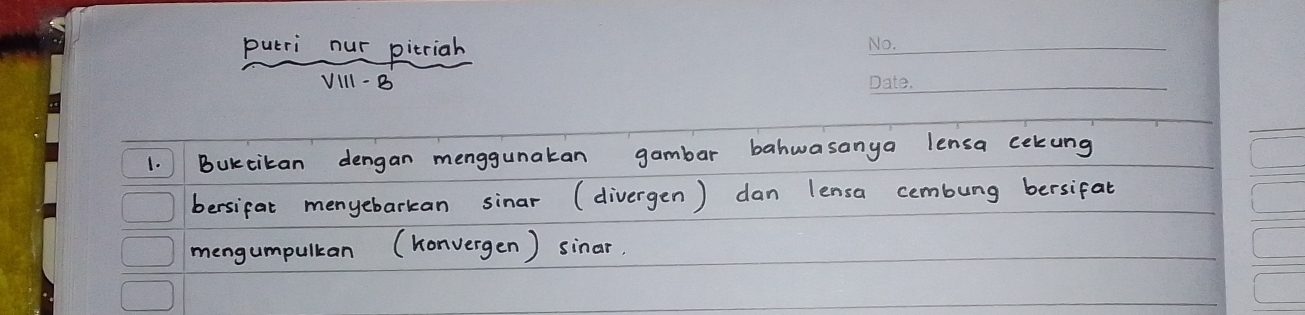 putri nur pitriah
VIII - B
No.
Date.
1. Buktikan dengan menggunakan gambar bahwasanya lensa cekung
bersifat menyebarkan sinar (divergen) dan lensa cembung bersifat
mengumpulkan (konvergen) sinar.